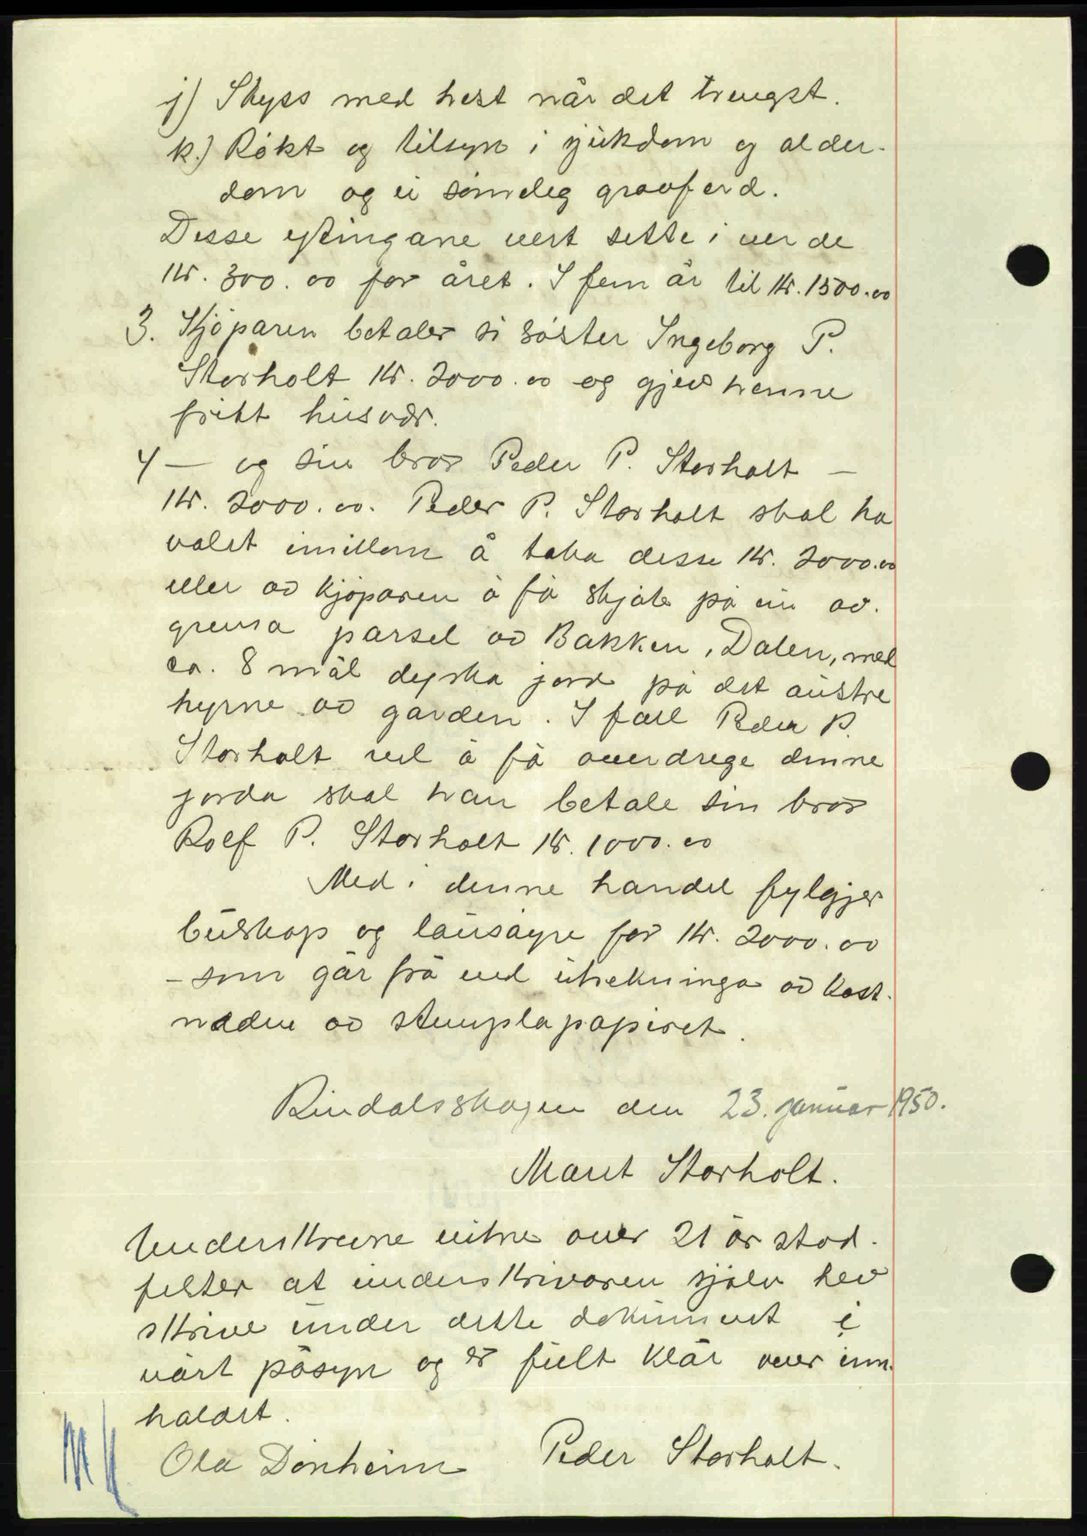 j) Skyss med hest når det trengst.
k.) Røkt og tilsyn i sjukdom og alder-
dom og ei sømeleg gravferd.
Desse ytingane vert sette i verde
kr. 300.00 for året. I fem år til kr. 1500.00
3. Kjøparen betaler si søster Ingeborg P.
Storholt kr. 2000.00 og gjev henne
fritt husvær.
4 — og sin bror Peder P. Storholt —
kr. 2000.00. Peder P. Storholt skal ha
valet imillom å taka desse kr. 2000.00
eller av kjøparen å få skjøte på ein av-
grensa parsel av Bakken, Dalen, med
ca. 8 mål dyrka jord på det austre
hyrne av garden. I fall Peder P.
Storholt vel å få overdrege denne
jorda skal han betale sin bror
Rolf P. Storholt kr. 1000.00
Med i denne handel fylgjer
buskap og lausøyre for kr. 2000.00
- som går frå ved utrekninga av kost-
naden av stempla papiret.
Rindalsskogen den 23. januar 1950.
Marit Storholt.
Underskrivne vitne over 21 år stad-
fester at underskrivaren sjølv hev
skrive under dette dokument i
vårt påsyn og er fullt klår over inn-
haldet.
Ola Dønheim Peder Storholt.